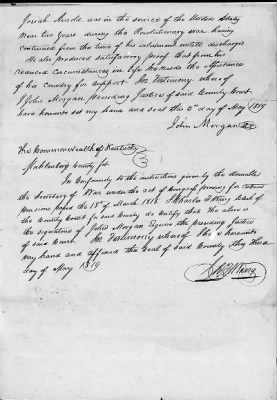 Josiah Arnold was in the service of the United States
near two years during the Revolutionary war having
continued from the time of his inlistment untill discharged
He also produced satisfactory proof that from his
reduced circumstances in life he needs the assistance
of his country for support In Testimony whereof
I John Morgan presiding Justice of said County Court
have hereunto set my hand and seal this 3d day of May 1819
John Morgan
The Commonwealth of Kentucky
Muhlenburg County
In Conformity to the instructions given by the
the Secretary of War under the act of Congress
pensions passed the 18th of March 1818 I Charles F Wing Clerk of
the County Court for said County do Certify that the above is
the signature of John Morgan Esquire the presiding Justice
of said Court In Testimony whereof I have hereunto
my hand and affixed the seal of said County this third
day of May 1819
Chs F Wing